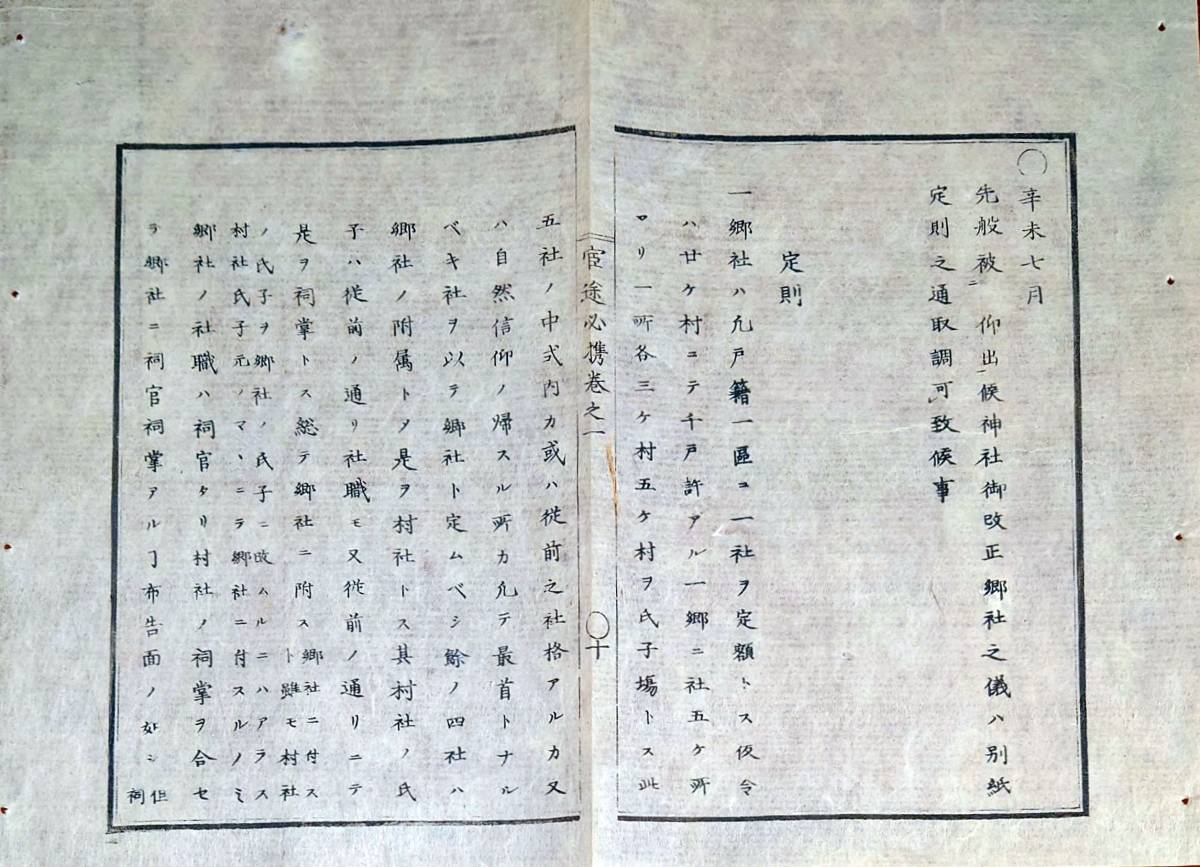 〇辛未七月
先般被ニ 仰出一候神社御改正郷社之儀ハ別紙
定則之通取調可致候事
定則
一郷社ハ凡戸籍一區ニ一社ヲ定額トス仮令
ハ廿ケ村ニテ千戸許アル一郷ニ社五ケ所
アリ一所各三ケ村五ケ村ヲ氏子場トス此
官途必携巻之一
〇十
五社ノ中式内カ或ハ従前之社格アルカ又
ハ自然信仰ノ帰スル所カ凡テ最首トナル
ベキ社ヲ以テ郷社ト定ムベシ餘ノ四社ハ
郷社ノ附属トシテ是ヲ村社トス其村社ノ氏
子ハ従前ノ通リ社職モ又従前ノ通リニテ
是ヲ祠掌トス総テ郷社ニ附ス
郷社ニ付ス
ト雖モ村社
ノ氏子ヲ郷社ノ氏子ニ改ムルニハアラス
村社氏子元ノマヽニテ郷社ニ付スルノミ
郷社ノ社職ハ祠官タリ村社ノ祠掌ヲ合セ
テ郷社ニ祠官祠掌アルヿ布告面ノ如シ
但
祠